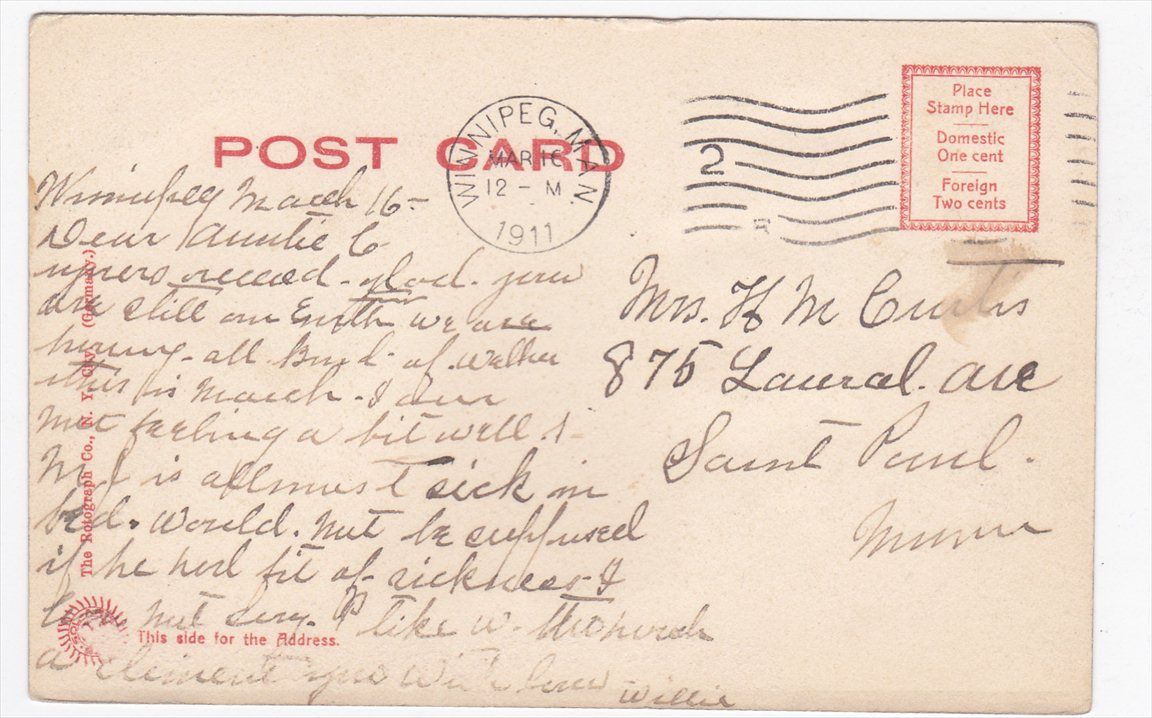 POST CARD
WINNIPEG, MAN.
MAR 16
12 - M
1911
2
Place
Stamp Here
Domestic
One cent
Foreign
Two cents
Winnipeg March 16-
Dear Auntie C
yours receed. glad. you
are still on Earth we are
having all kind of
this is March. I am
not feeling a bit well.
is allmost sick in
bed. would. not be
if he had fit of sickness I
not like
a you with love Willie
Mrs. H M Curtis
875 Laural. ave
Saint Paul.
Minn
The Rotograph Co., N. Y. City. (Germany.)
This side for the Address.